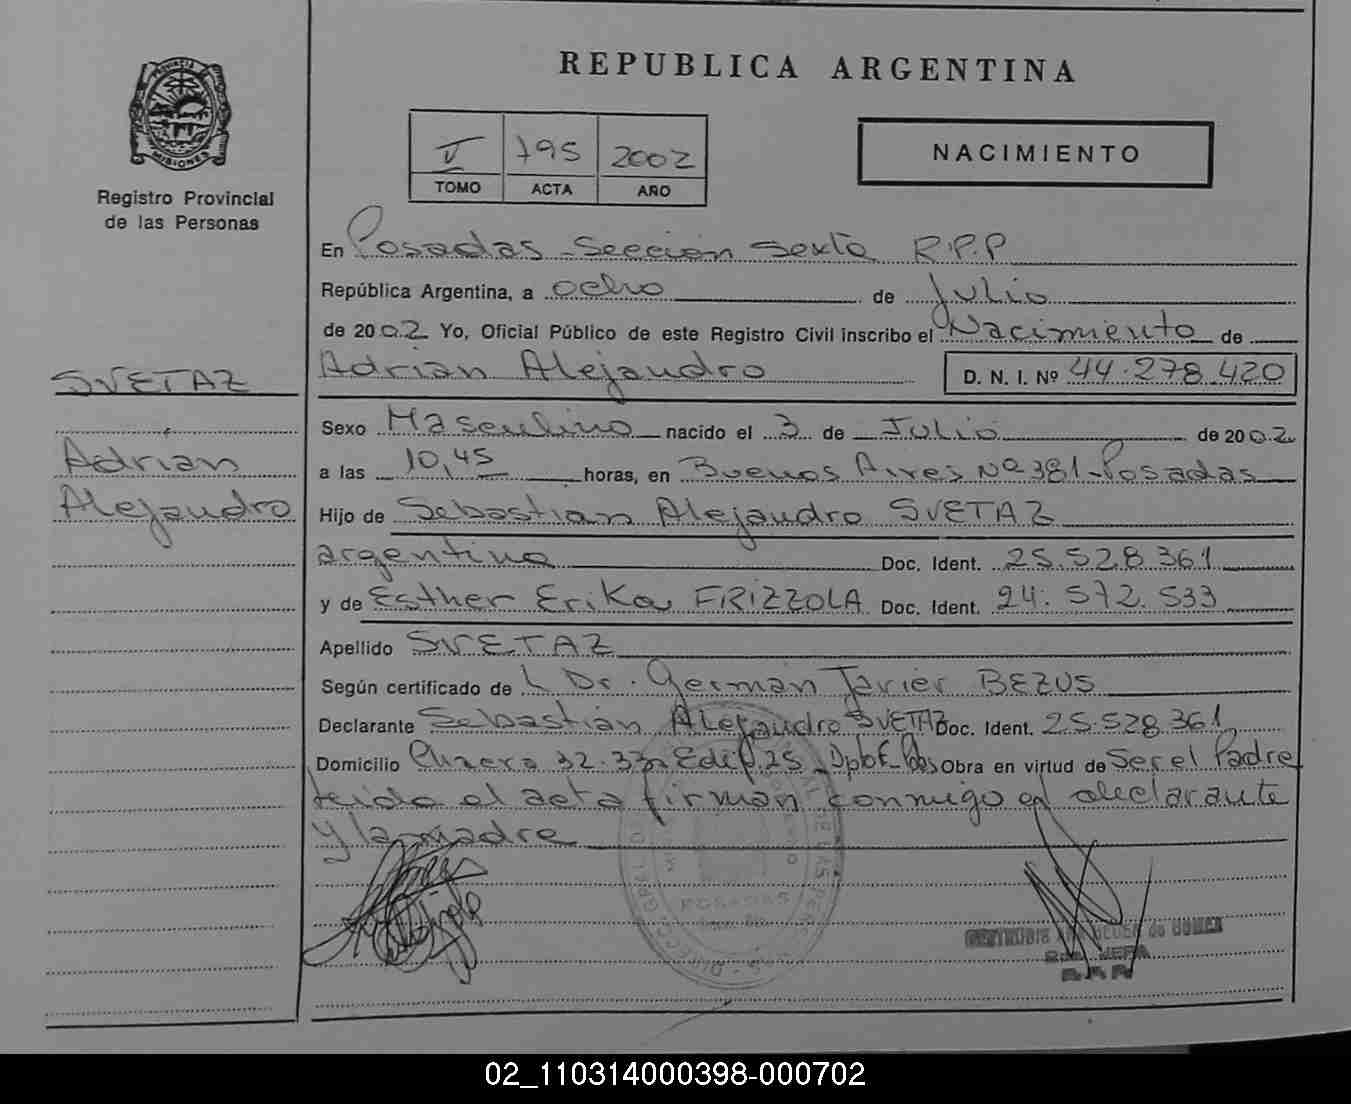 PROVINCIA DE
MISIONES
Registro Provincial
de las Personas
SVETAZ
Adrian
Alejandro
REPUBLICA ARGENTINA
V 795 2002
TOMO ACTA AÑO
NACIMIENTO
En Posadas - Sección Sexta R.P.P
República Argentina, a ocho de Julio
de 2002 Yo, Oficial Público de este Registro Civil inscribo el Nacimiento de
Adrian Alejandro D. N. I. Nº 44.278.420
Sexo Masculino nacido el 3 de Julio de 2002
a las 10,45 horas, en Buenos Aires Nº 381 - Posadas
Hijo de Sebastian Alejandro SVETAZ
argentino Doc. Ident. 25.528.361
y de Esther Erika FRIZZOLA Doc. Ident. 24.572.533
Apellido SVETAZ
Según certificado de Dr. Germán Javier BEZUS
Declarante Sebastián Alejandro SVETAZ Doc. Ident. 25.528.361
Domicilio 32-33 Edif. 25 Obra en virtud de Ser el Padre
leida el acta firman conmigo el declarante
y la madre
POSADAS
02_110314000398-000702